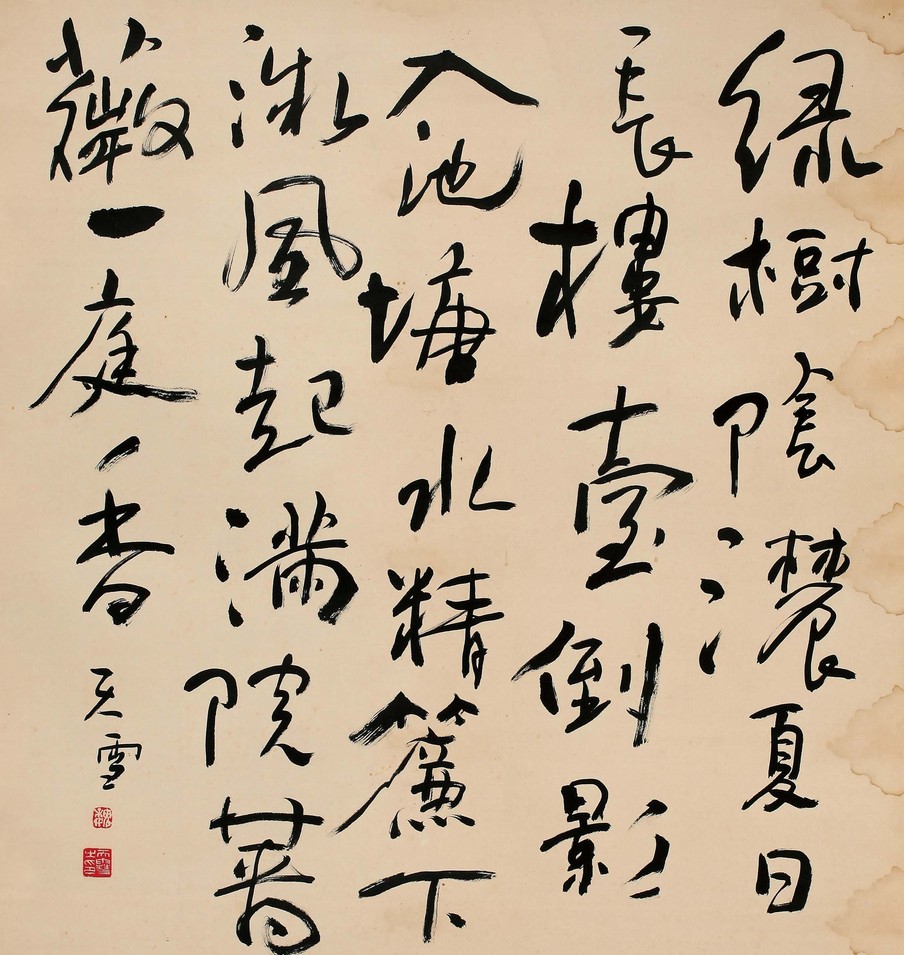 綠樹陰濃夏日
長樓臺倒影
入池塘水精簾下
微風起滿院薔
薇一庭香
天雪